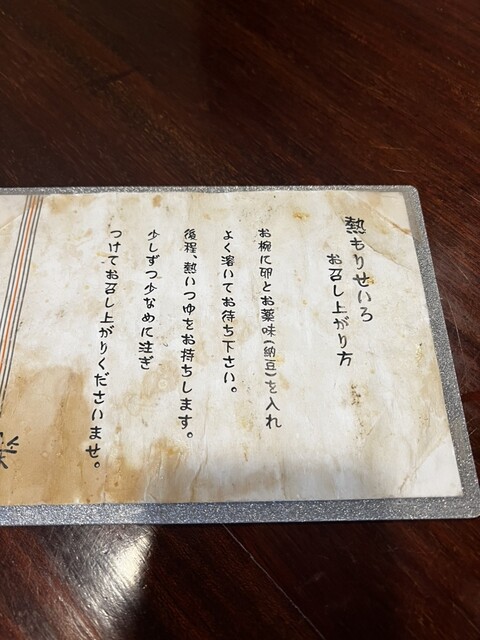 熱もりせいろ
お召し上がり方
お椀に卵とお薬味(納豆)を入れ
よく溶いてお待ち下さい。
後程、熱いつゆをお持ちします。
少しずつ少なめに注ぎ
つけてお召し上がりくださいませ。